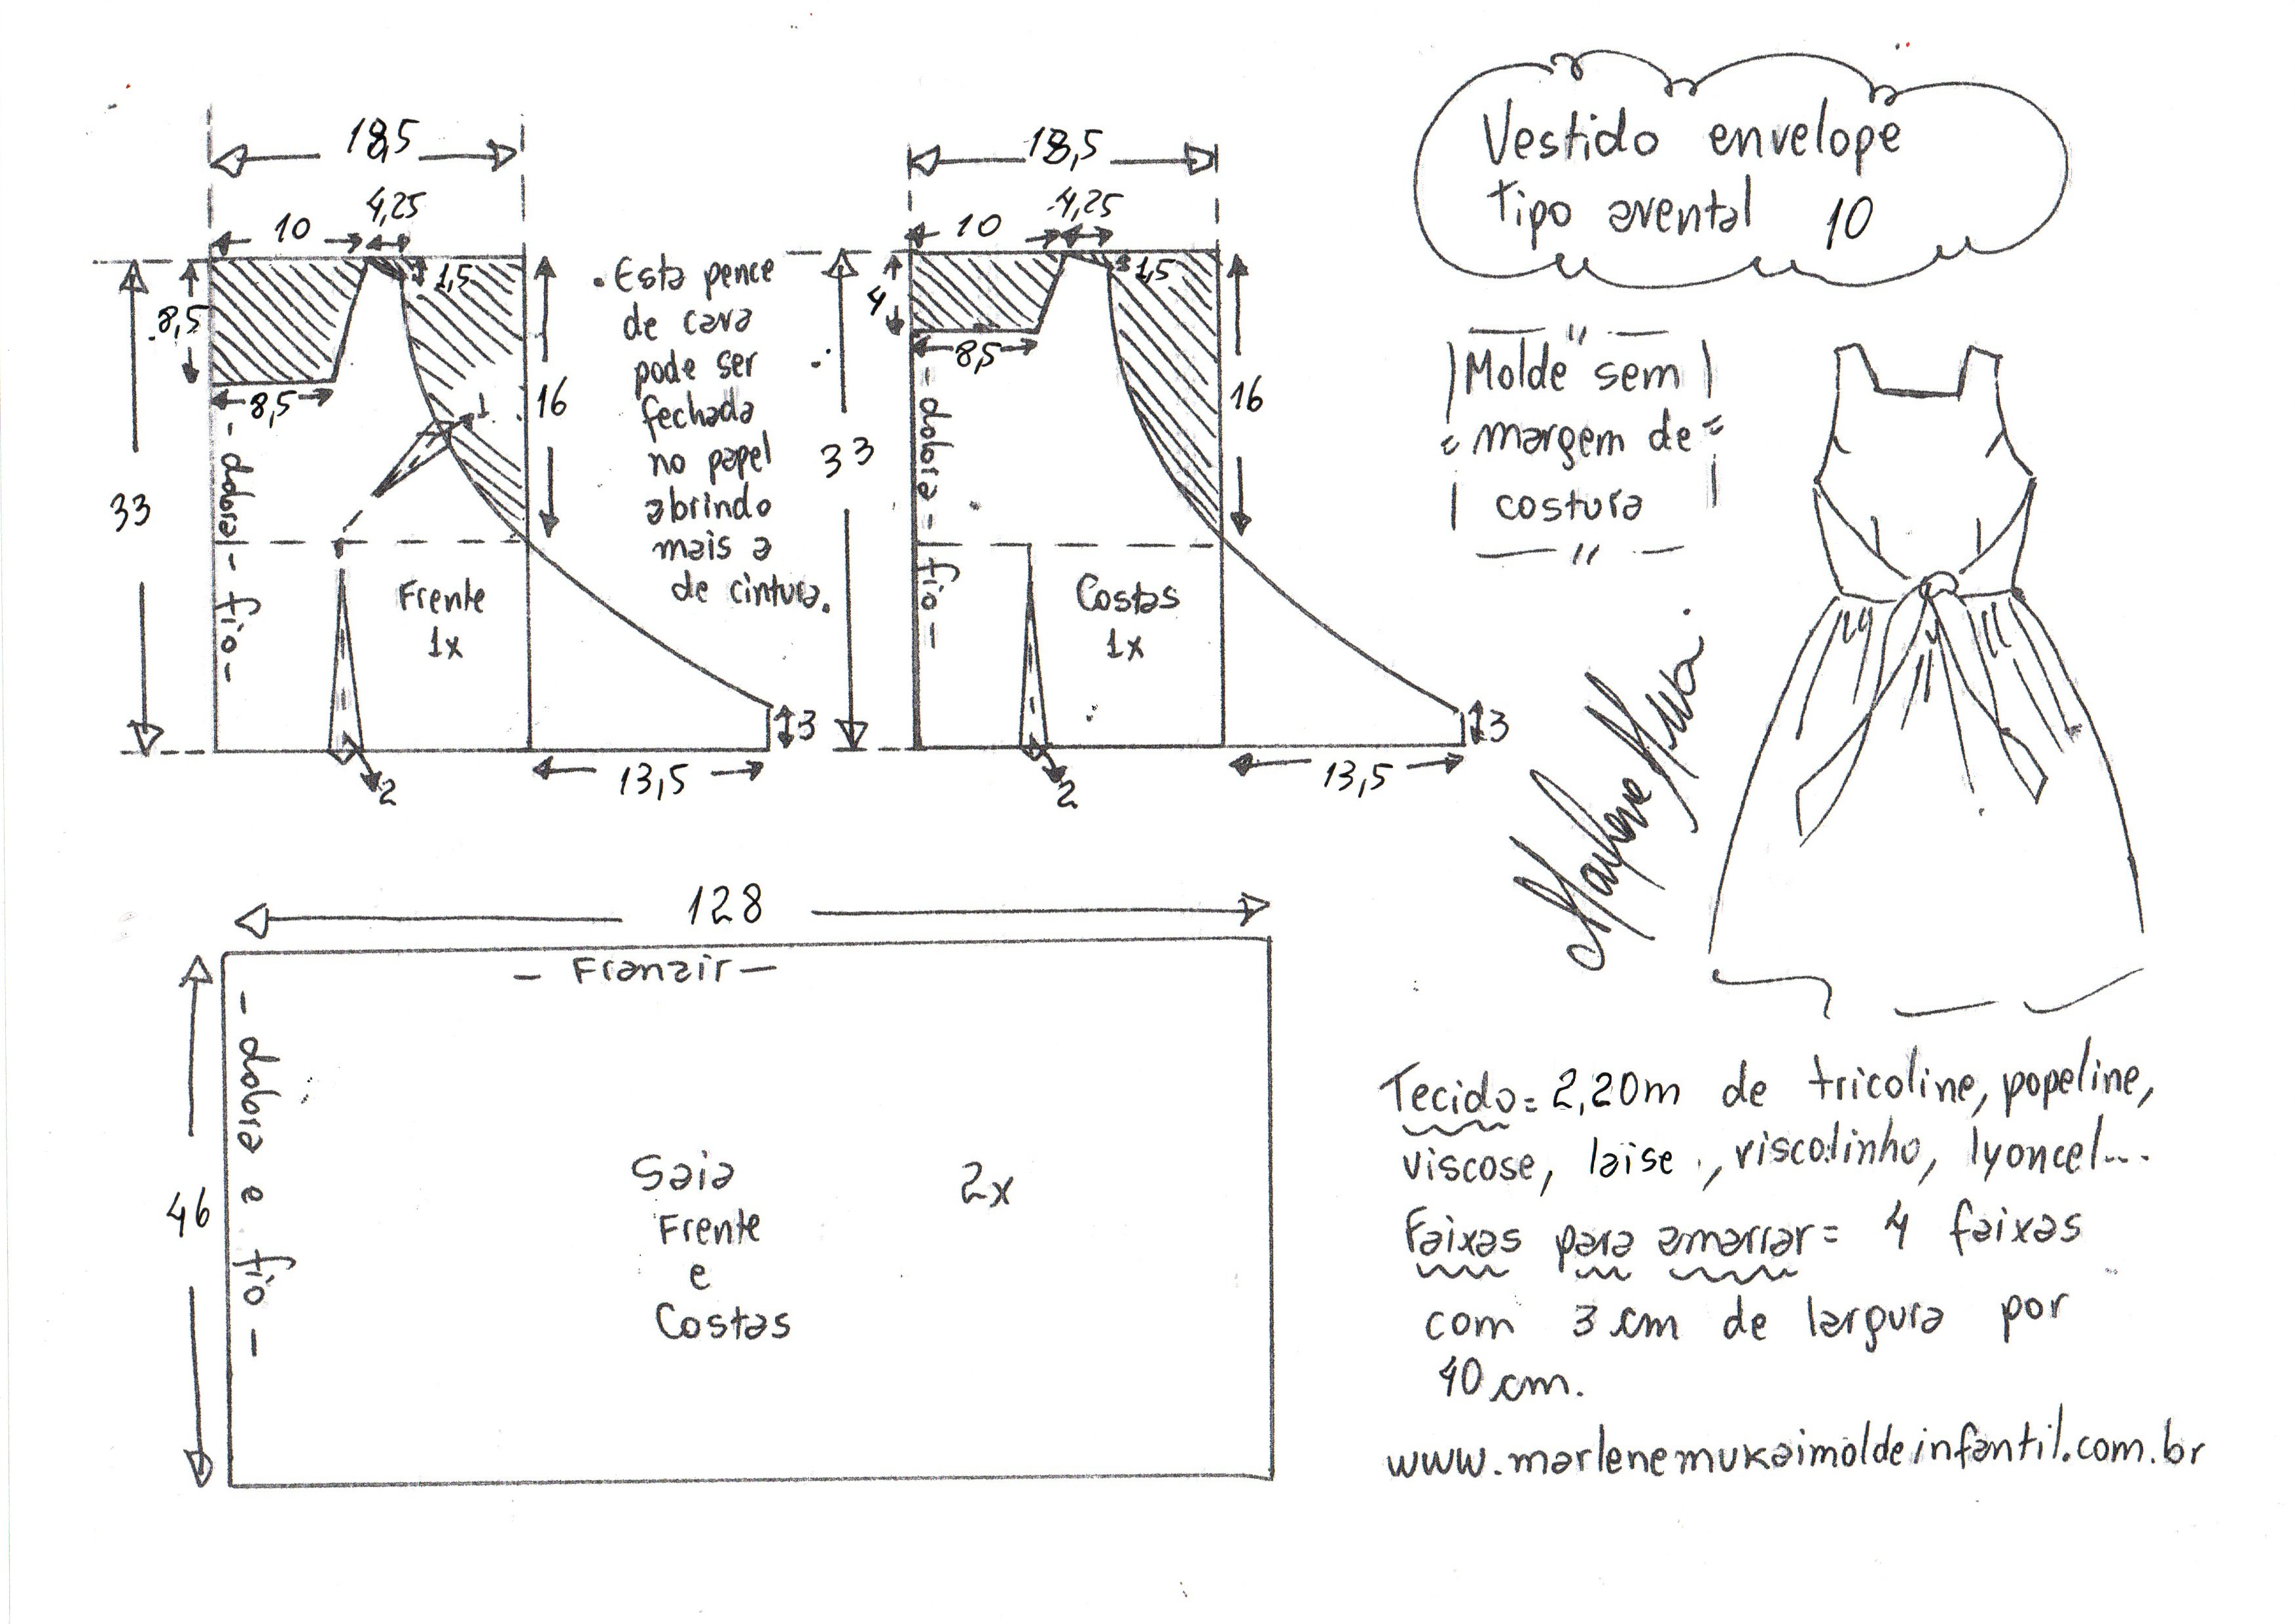 18,5
4,25
10
1,5
8,5
8,5
1
16
33
- dobra - fio -
Frente
1x
2
13,5
3
. Esta pence
de cava
pode ser
fechada
no papel
abrindo
mais a
de cintura.
18,5
4,25
10
1,5
4
8,5
16
33
- dobra - fio -
Costas
1x
2
13,5
3
Vestido envelope
tipo avental 10
Molde sem
margem de
costura
128
- Franzir -
46
- dobra e fio -
Saia 2x
Frente
e
Costas
Tecido = 2,20m de tricoline, popeline,
viscose, laise, viscolinho, lyoncel...
Faixas para amarrar = 4 faixas
com 3 cm de largura por
40 cm.
www.marlenemukaimoldeinfantil.com.br